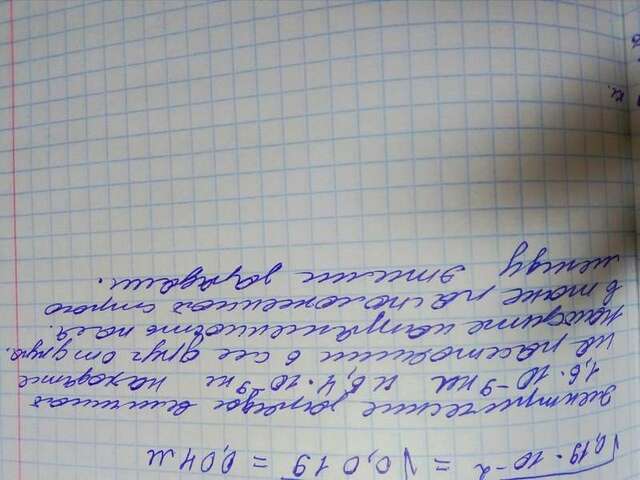 √0,19·10⁻² = √0,019 = 0,04 м
электрические заряды величиной
1,6·10⁻⁹ нкл и 6,4·10⁻⁹ кл находятся
на расстоянии 6 см друг от друга.
найдите напряженность поля.
в точке расположенной строго
между этими зарядами.
кл.